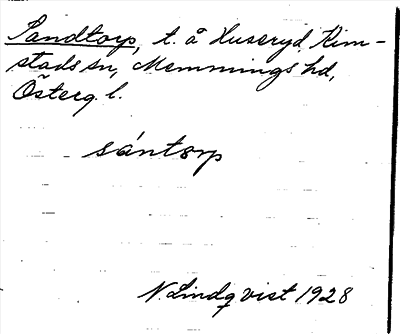 Sandtorp, t. å Huseryd, Rim-
stads sn, Memmings hd,
Österg. l.
sántorp
N. Lindqvist 1928